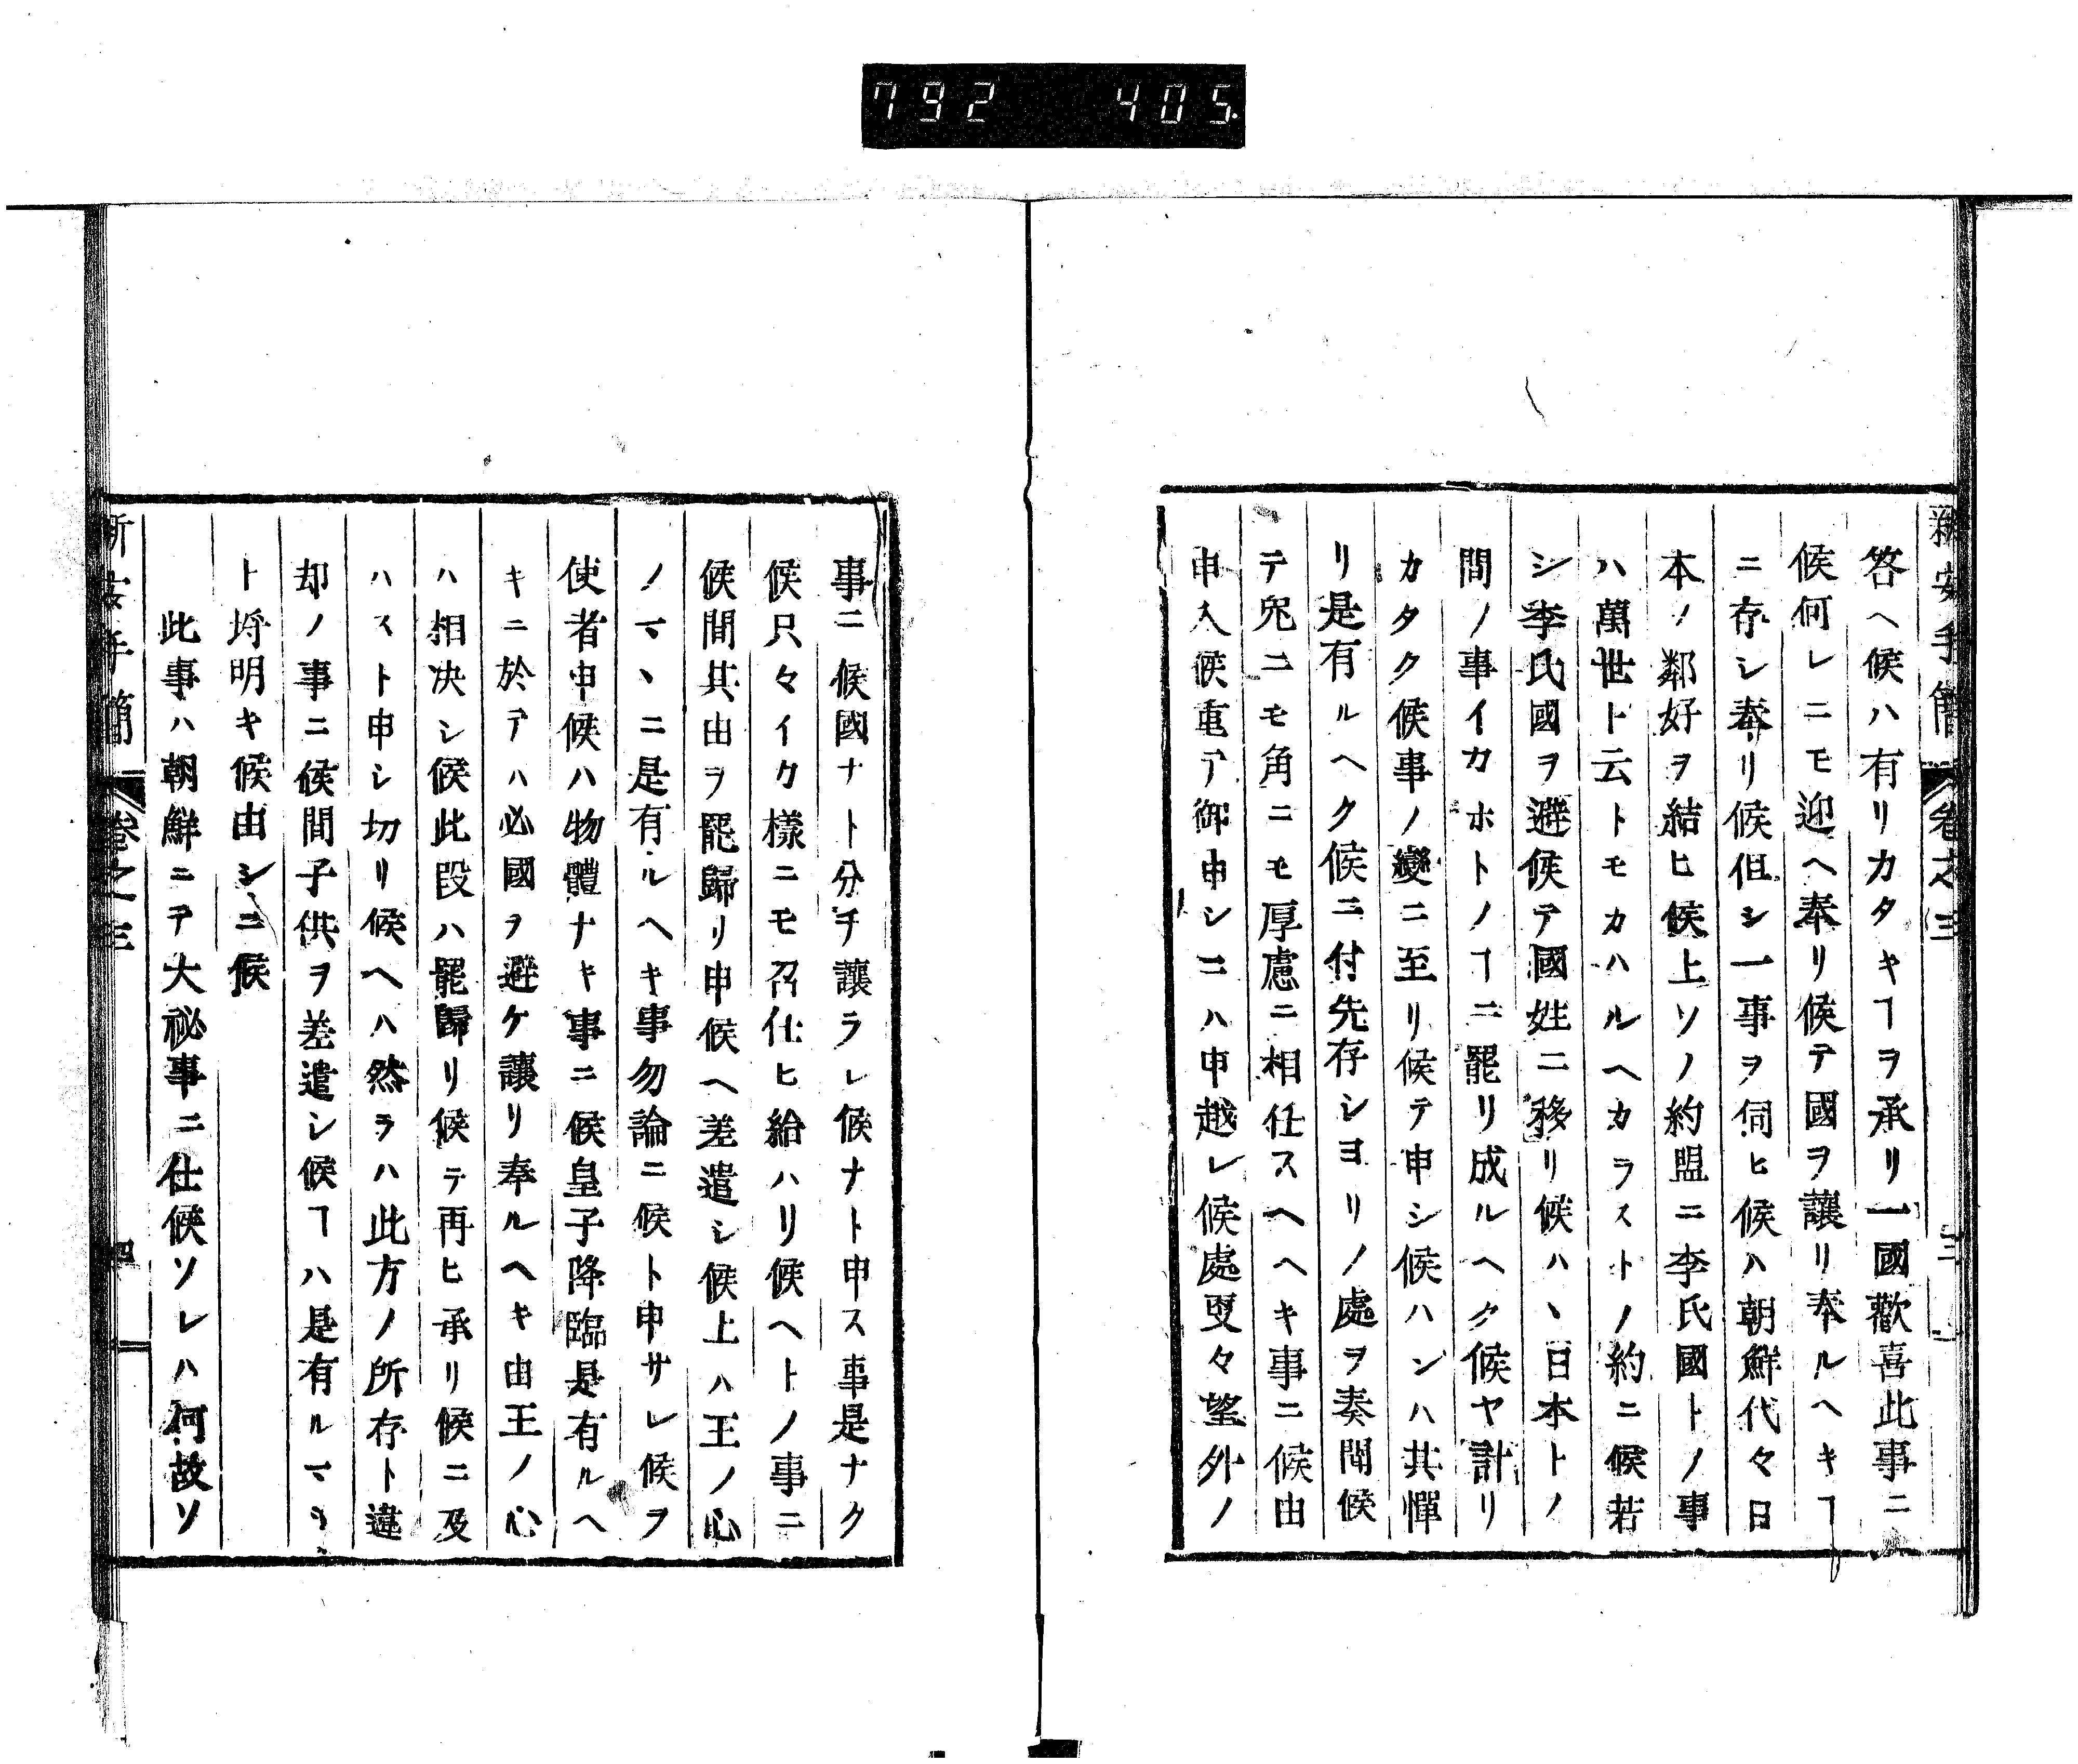 792 405
新安手簡 卷之三 三
答ヘ候ハ有リカタキヿヲ承リ一國歡喜此事ニ
候何レニモ迎ヘ奉リ候テ國ヲ讓リ奉ルヘキヿ
ニ存シ奉リ候但シ一事ヲ伺ヒ候ハ朝鮮代々日
本ノ鄰好ヲ結ヒ候上ソノ約盟ニ李氏國トノ事
ハ萬世ト云トモカハルヘカラストノ約ニ候若
シ李氏國ヲ避候テ國姓ニ移リ候ハヽ日本トノ
間ノ事イカホトノヿニ罷リ成ルヘク候ヤ計リ
カタク候事ノ變ニ至リ候テ申シ候ハンハ其憚
リ是有ルヘク候ニ付先存シヨリノ處ヲ奏聞候
テ兎ニモ角ニモ厚慮ニ相任スヘヘキ事ニ候由
申入候重テ御申シニハ申越レ候處叓々望外ノ
事ニ候國ナト分チ讓ラレ候ナト申ス事是ナク
候只々イク樣ニモ召仕ヒ給ハリ候ヘトノ事ニ
候間其由ヲ罷歸リ申候ヘ差遣シ候上ハ王ノ心
ノマヽニ是有ルヘキ事勿論ニ候ト申サレ候ヲ
使者申候ハ物體ナキ事ニ候皇子降臨是有ルヘ
キニ於テハ必國ヲ避ケ讓リ奉ルヘキ由王ノ心
ハ相決シ候此段ハ罷歸リ候テ再ヒ承リ候ニ及
ハスト申シ切リ候ヘハ然ラハ此方ノ所存ト違
却ノ事ニ候間子供ヲ差遣シ候ヿハ是有ルマシ
ト埓明キ候由シニ候
此事ハ朝鮮ニテ大祕事ニ仕候ソレハ何故ソ
新安手簡 卷之三 四